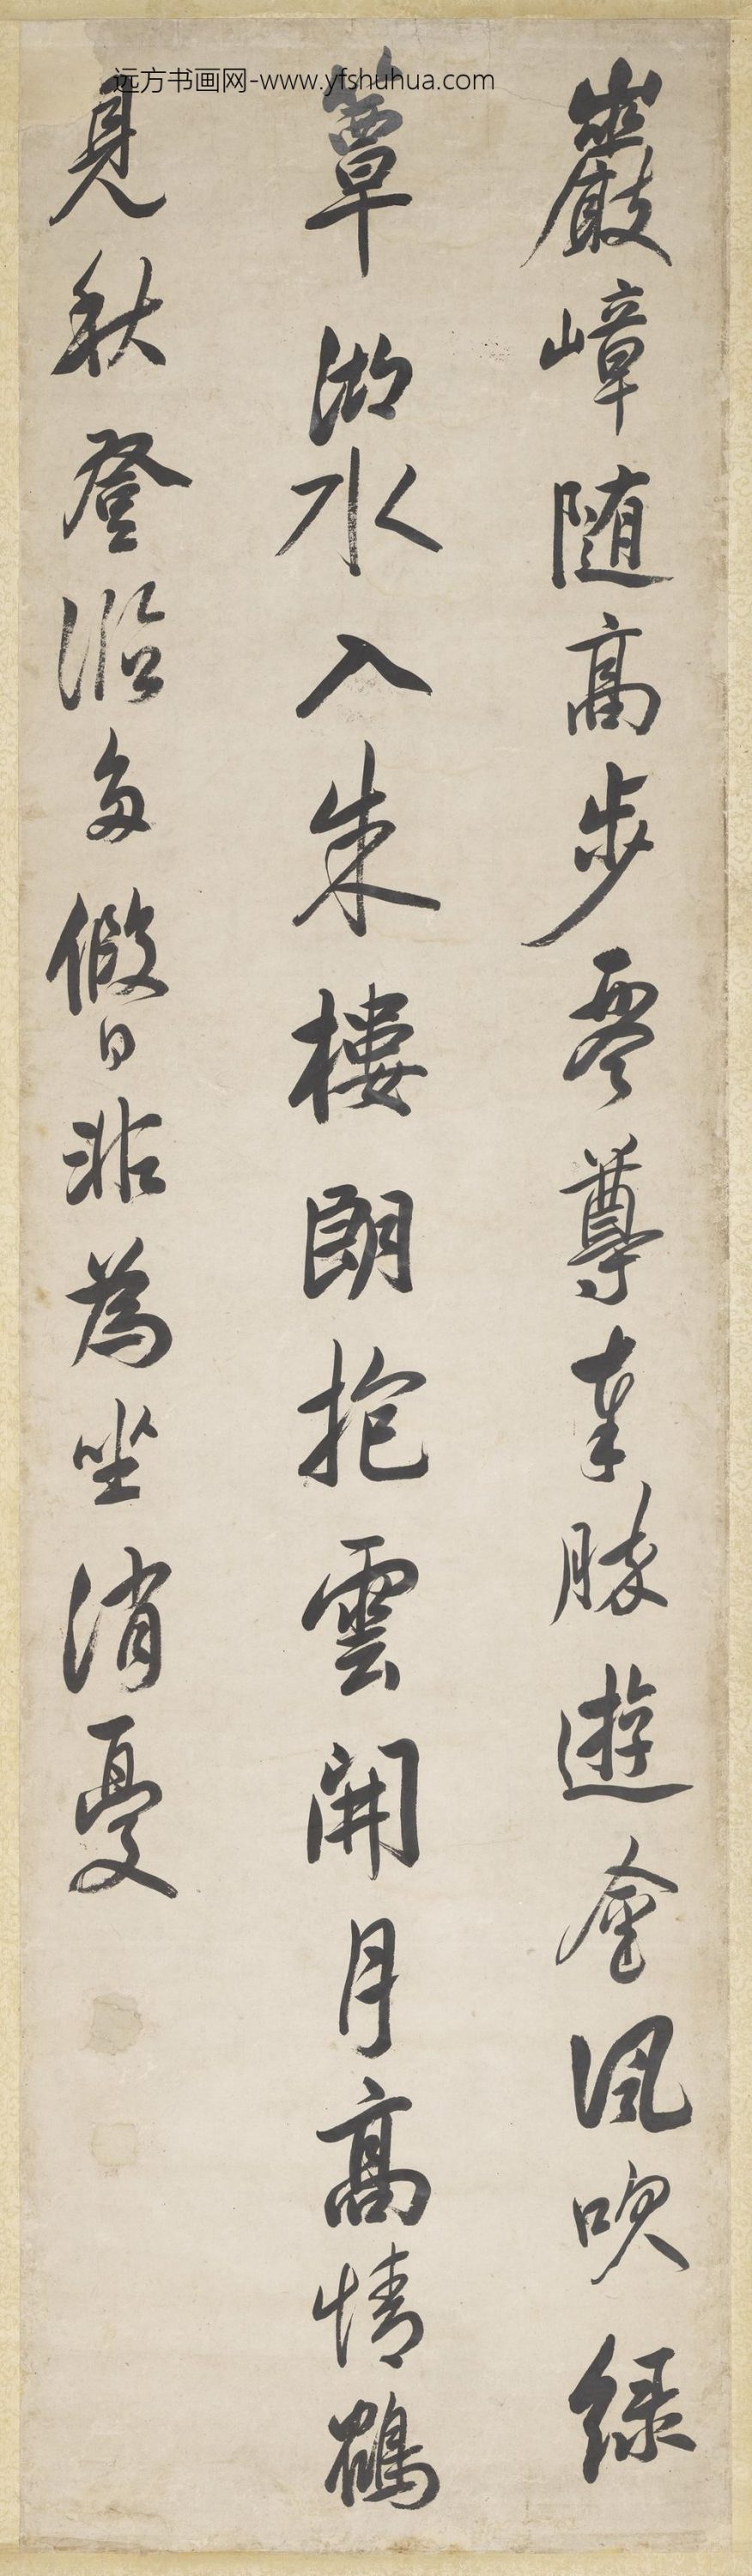 远方书画网-www.yfshuhua.com
巖嶂随高步琴尊奉勝遊金風吹緑
簟湖水入朱樓朗抱雲開月高情鶴
見秋登臨多假日非為坐消憂